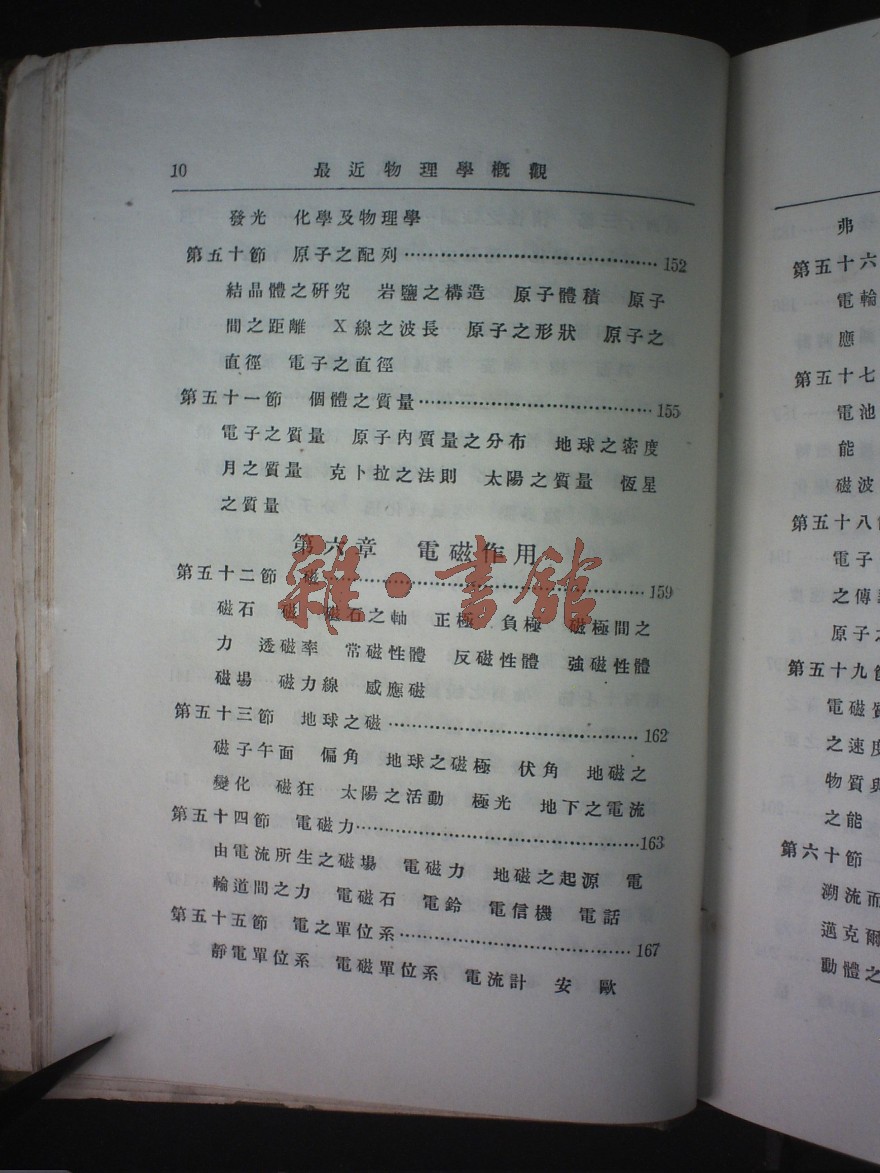 10 最近物理學概觀
發光 化學及物理學
第五十節 原子之配列……………………………152
結晶體之研究 岩鹽之構造 原子體積 原子
間之距離 X線之波長 原子之形狀 原子之
直徑 電子之直徑
第五十一節 個體之質量……………………………155
電子之質量 原子內質量之分布 地球之密度
月之質量 克卜拉之法則 太陽之質量 恆星
之質量
第六章 電磁作用
第五十二節 磁……………………………159
磁石 磁 磁石之軸 正極 負極 磁極間之
力 透磁率 常磁性體 反磁性體 強磁性體
磁場 磁力線 感應磁
第五十三節 地球之磁……………………………162
磁子午面 偏角 地球之磁極 伏角 地磁之
變化 磁狂 太陽之活動 極光 地下之電流
第五十四節 電磁力……………………………163
由電流所生之磁場 電磁力 地磁之起源 電
輪道間之力 電磁石 電鈴 電信機 電話
第五十五節 電之單位系……………………………167
靜電單位系 電磁單位系 電流計 安 歐
雜·書館
弗
第五十六
電輪
應
第五十七
電池
能
磁波
第五十八節
電子
之傳
原子之
第五十九節
電磁質
之速度
物質與
之能
第六十節
溯流而
邁克爾
動體之